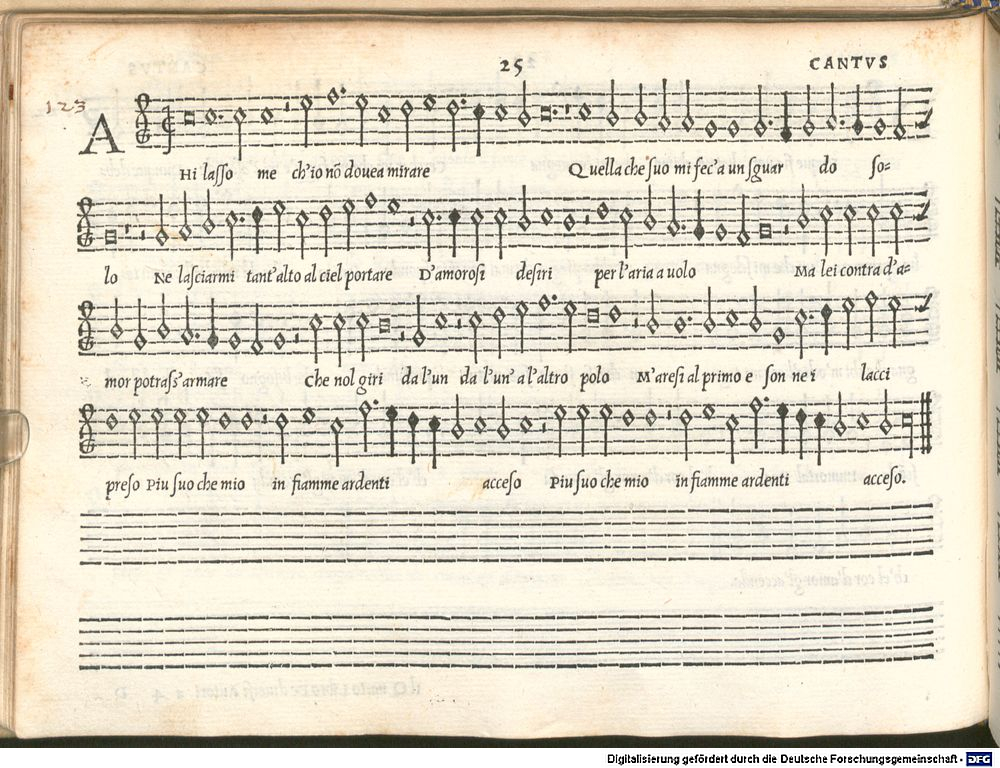 25 CANTVS
123
A Hi lasso me ch'io nō douea mirare Quella che suo mi fec'a un sguar do so-
lo Ne lasciarmi tant'alto al ciel portare D'amorosi desiri per l'aria a uolo Ma lei contra d'a-
mor potrass'armare Che nol giri da l'un da l'un' a l'altro polo M'aresi al primo e son ne i lacci
preso Piu suo che mio in fiamme ardenti acceso Piu suo che mio in fiamme ardenti acceso.
Digitalisierung gefördert durch die Deutsche Forschungsgemeinschaft - DFG